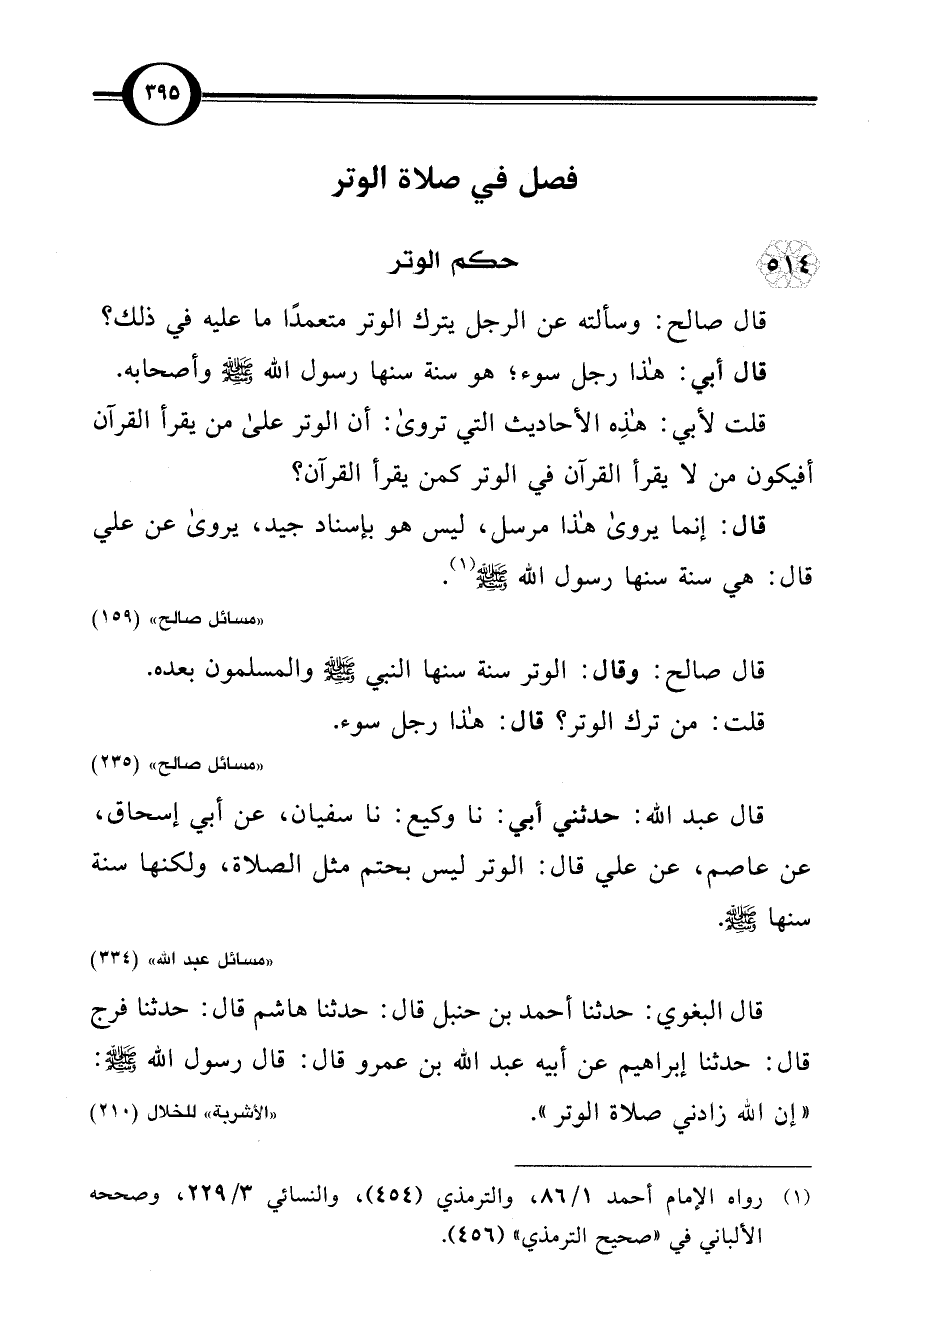 ٣٩٥
فصل في صلاة الوتر
٥١٤ حكم الوتر
قال صالح: وسألته عن الرجل يترك الوتر متعمدًا ما عليه في ذلك؟
قال أبي: هٰذا رجل سوء؛ هو سنة سنها رسول الله ﷺ وأصحابه.
قلت لأبي: هٰذِه الأحاديث التي تروىٰ: أن الوتر علىٰ من يقرأ القرآن
أفيكون من لا يقرأ القرآن في الوتر كمن يقرأ القرآن؟
قال: إنما يروىٰ هٰذا مرسل، ليس هو بإسناد جيد، يروىٰ عن علي
قال: هي سنة سنها رسول الله ﷺ(١).
«مسائل صالح» (١٥٩)
قال صالح: وقال: الوتر سنة سنها النبي ﷺ والمسلمون بعده.
قلت: من ترك الوتر؟ قال: هٰذا رجل سوء.
«مسائل صالح» (٢٣٥)
قال عبد الله: حدثني أبي: نا وكيع: نا سفيان، عن أبي إسحاق،
عن عاصم، عن علي قال: الوتر ليس بحتم مثل الصلاة، ولكنها سنة
سنها ﷺ.
«مسائل عبد الله» (٣٣٤)
قال البغوي: حدثنا أحمد بن حنبل قال: حدثنا هاشم قال: حدثنا فرج
قال: حدثنا إبراهيم عن أبيه عبد الله بن عمرو قال: قال رسول الله ﷺ:
«إن الله زادني صلاة الوتر». «الأشربة» للخلال (٢١٠)
(١) رواه الإمام أحمد ١/ ٨٦، والترمذي (٤٥٤)، والنسائي ٣/ ٢٢٩، وصححه
الألباني في «صحيح الترمذي» (٤٥٦).